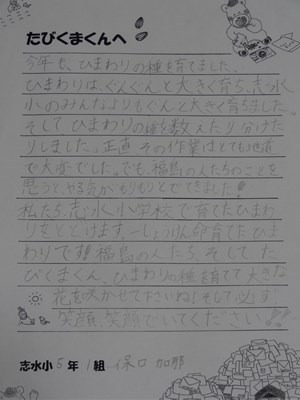 たびくまくんへ
今年も、ひまわりの種を育てました。
ひまわりは、ぐんぐんと大きく育ち、志水
小のみんなよりもぐんと大きく育ちました。
そしてひまわりの種を数えたり分けた
りしました。正直 その作業はとても地道
で大変でした。でも、福島の人たちのことを
思うと、やる気がもりもりとでてきました!
私たち、志水小学校で育てたひまわ
りをとどけます。一しょうけん命育てたひま
わりです!!福島の人たち、そして、た
びくまくん、ひまわりの種を育てて大きな
花を咲かせて下さいね!そして必ず
笑顔、笑顔でいてください!!!
志水小5年1組 保口 加那